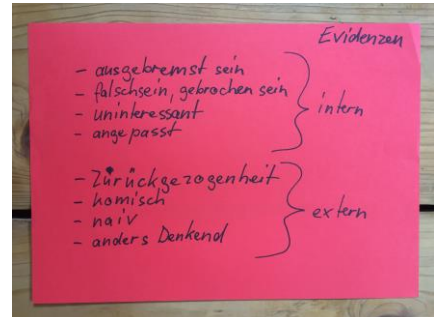 Evidenzen
- ausgebremst sein
- falschsein, gebrochen sein
- uninteressant
- angepasst
intern
- Zürückgezogenheit
- komisch
- naiv
- anders Denkend
extern